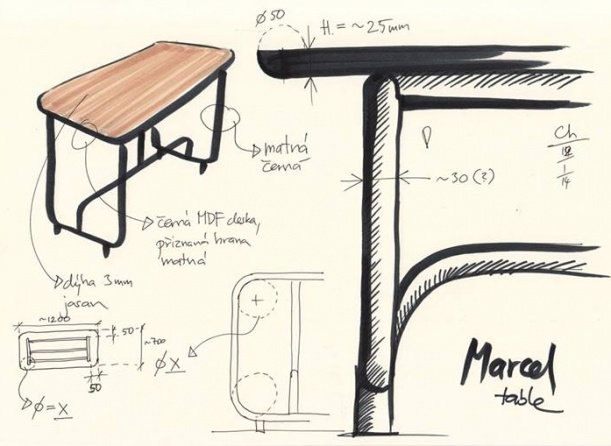 Ø 50
H = ~25mm
matná
černá
Ch
12
1
14
~30(?)
černá MDF deska,
přiznaná hrana
matná
dýha 3mm
jasan
~1200
50
~700
50
Ø=X
ØX
Marcel
table